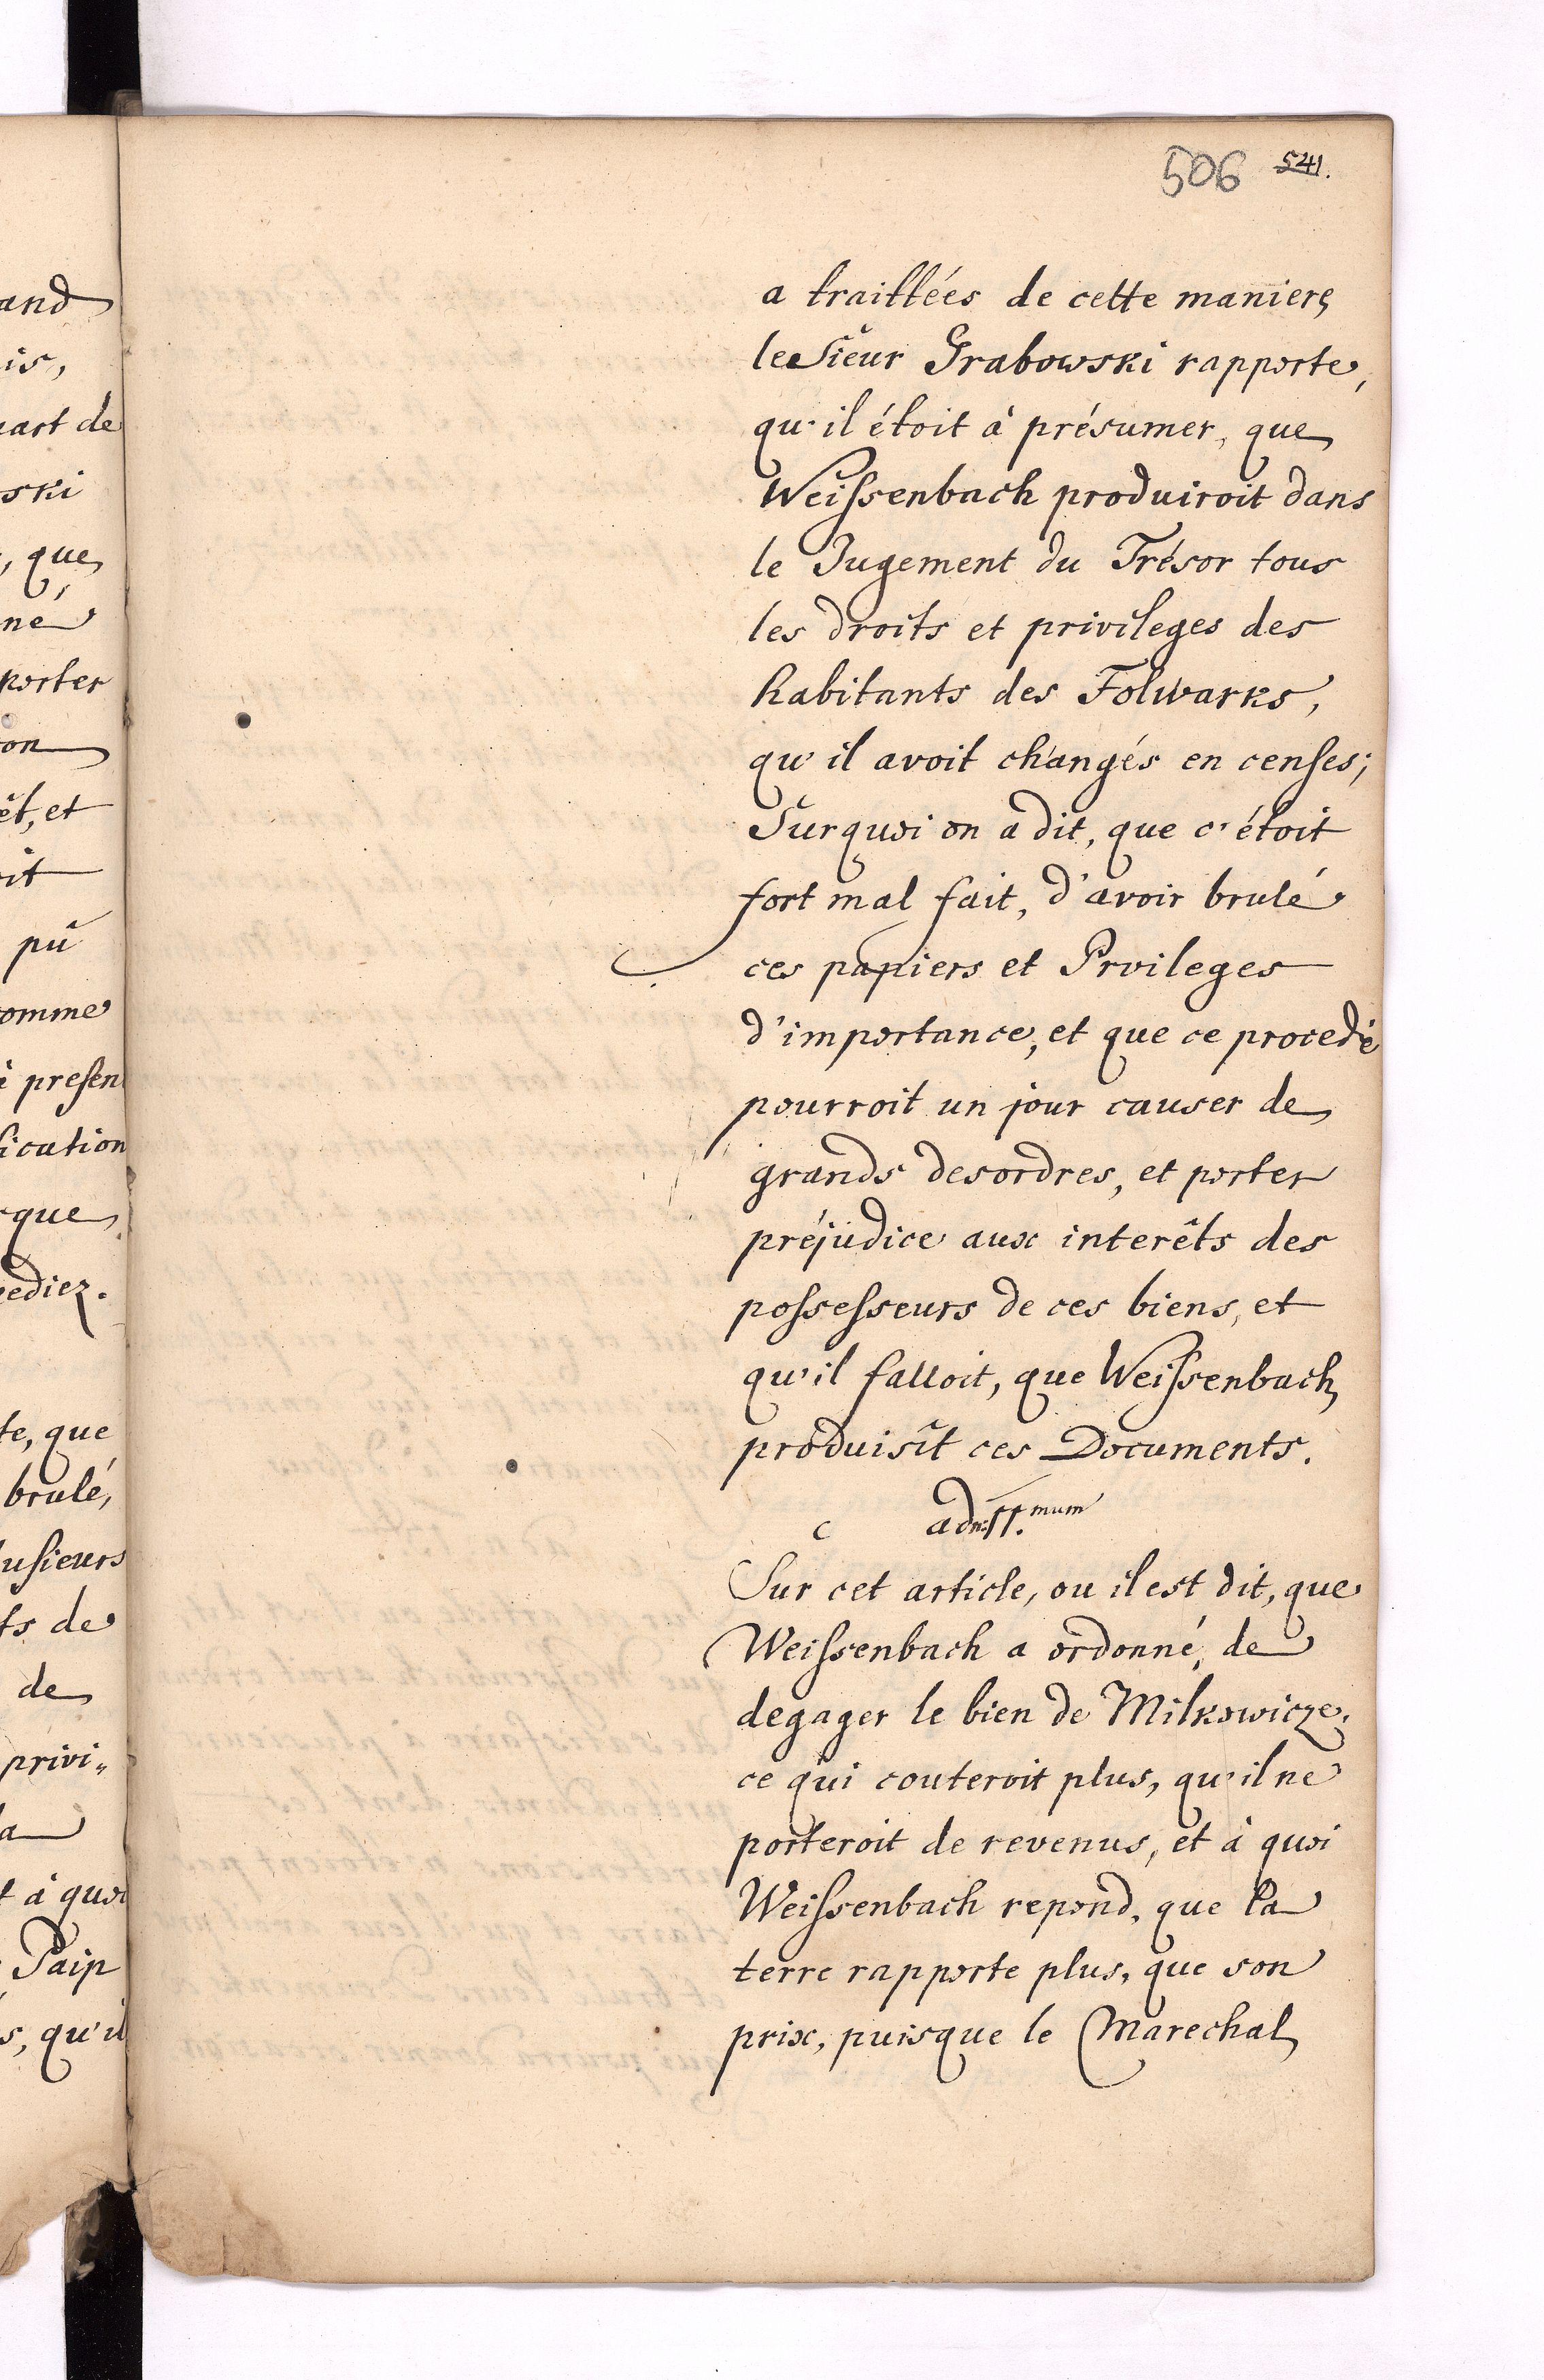 506 541.
a traittées de cette maniere,
le Sieur Grabowski rapporte,
qu'il étoit à présumer, que
Weissenbach produiroit dans
le Jugement du Trésor tous
les droits et privileges des
habitants des Folwarks,
qu'il avoit changés en censes;
Surquoi on a dit, que c'étoit
fort mal fait, d'avoir brulé
ces papiers et Prvileges
d'importance, et que ce procedé
pourroit un jour causer de
grands desordres, et porter
préjudice aux interêts des
possesseurs de ces biens, et
qu'il falloit, que Weissenbach
produisît ces Documents.
mum
Sur cet article, ou il est dit, que
Weissenbach a ordonné, de
degager le bien de Milkowicze,
ce qui couteroit plus, qu'il ne
porteroit de revenus, et à quoi
Weissenbach repond, que la
terre rapporte plus, que son
prix, puisque le Marechal